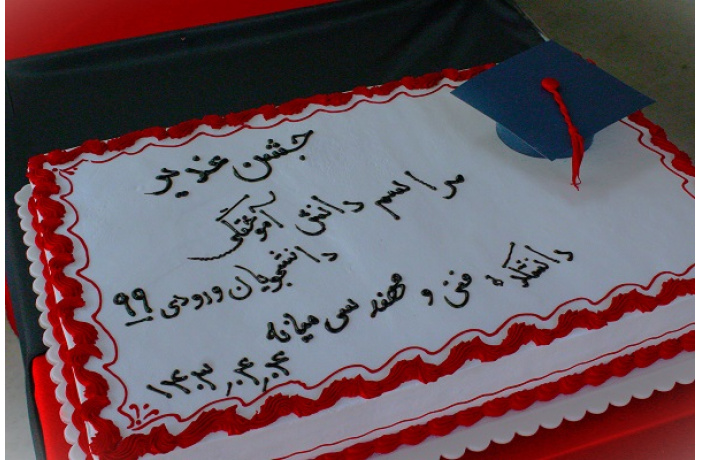 جشن غدیر
مراسم دانش آموختگی
دانشجویان ورودی ۹۹
دانشکده فنی و مهندسی میانه
۱۴۰۳،۰۴،۰۴